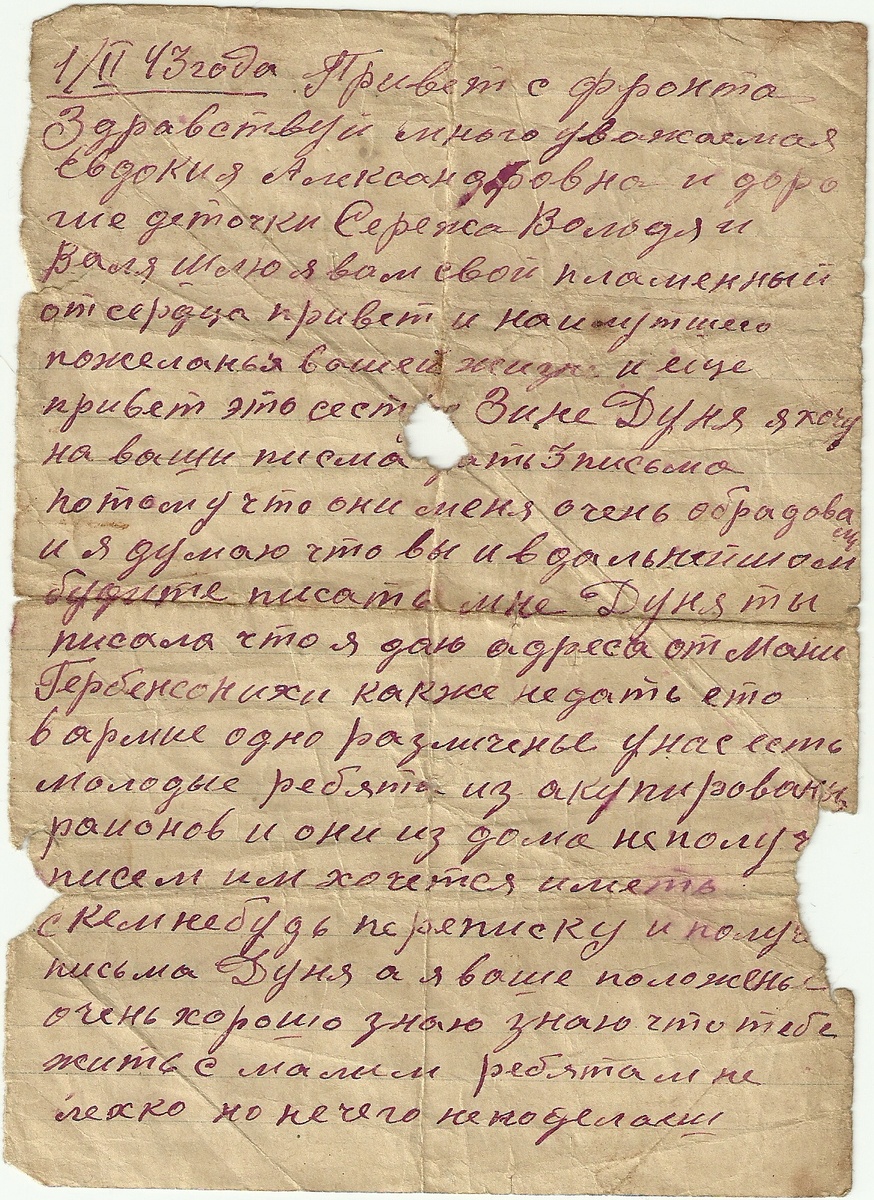 1/II 43 года Привет с фронта
Здравствуй много уважаемая
Евдокия Александровна и доро
гие деточки Сережа Володя и
Валя шлю я вам свой пламенный
от сердца привет и наилутшего
пожеланья вашей жизни и еще
привет это сест Зине Дуня я хочу
на ваши писма дать 3 письма
потому что они меня очень обрадова
и я думаю что вы и в дальнейшом
будите писать мне Дуня ты
писала что я даю адреса от Мани
Гербенсонихи как же не дать ето
в армие одно различенье у нас есть
молодые ребята из акупирован
раионов и они из дома неполуч
писем им хочется иметь
с кемнебудь переписку и получ
письма Дуня а я ваше положенье
очень хорошо знаю знаю что тебе
жить с малим ребятам не
лехко но нечего неподелаеш